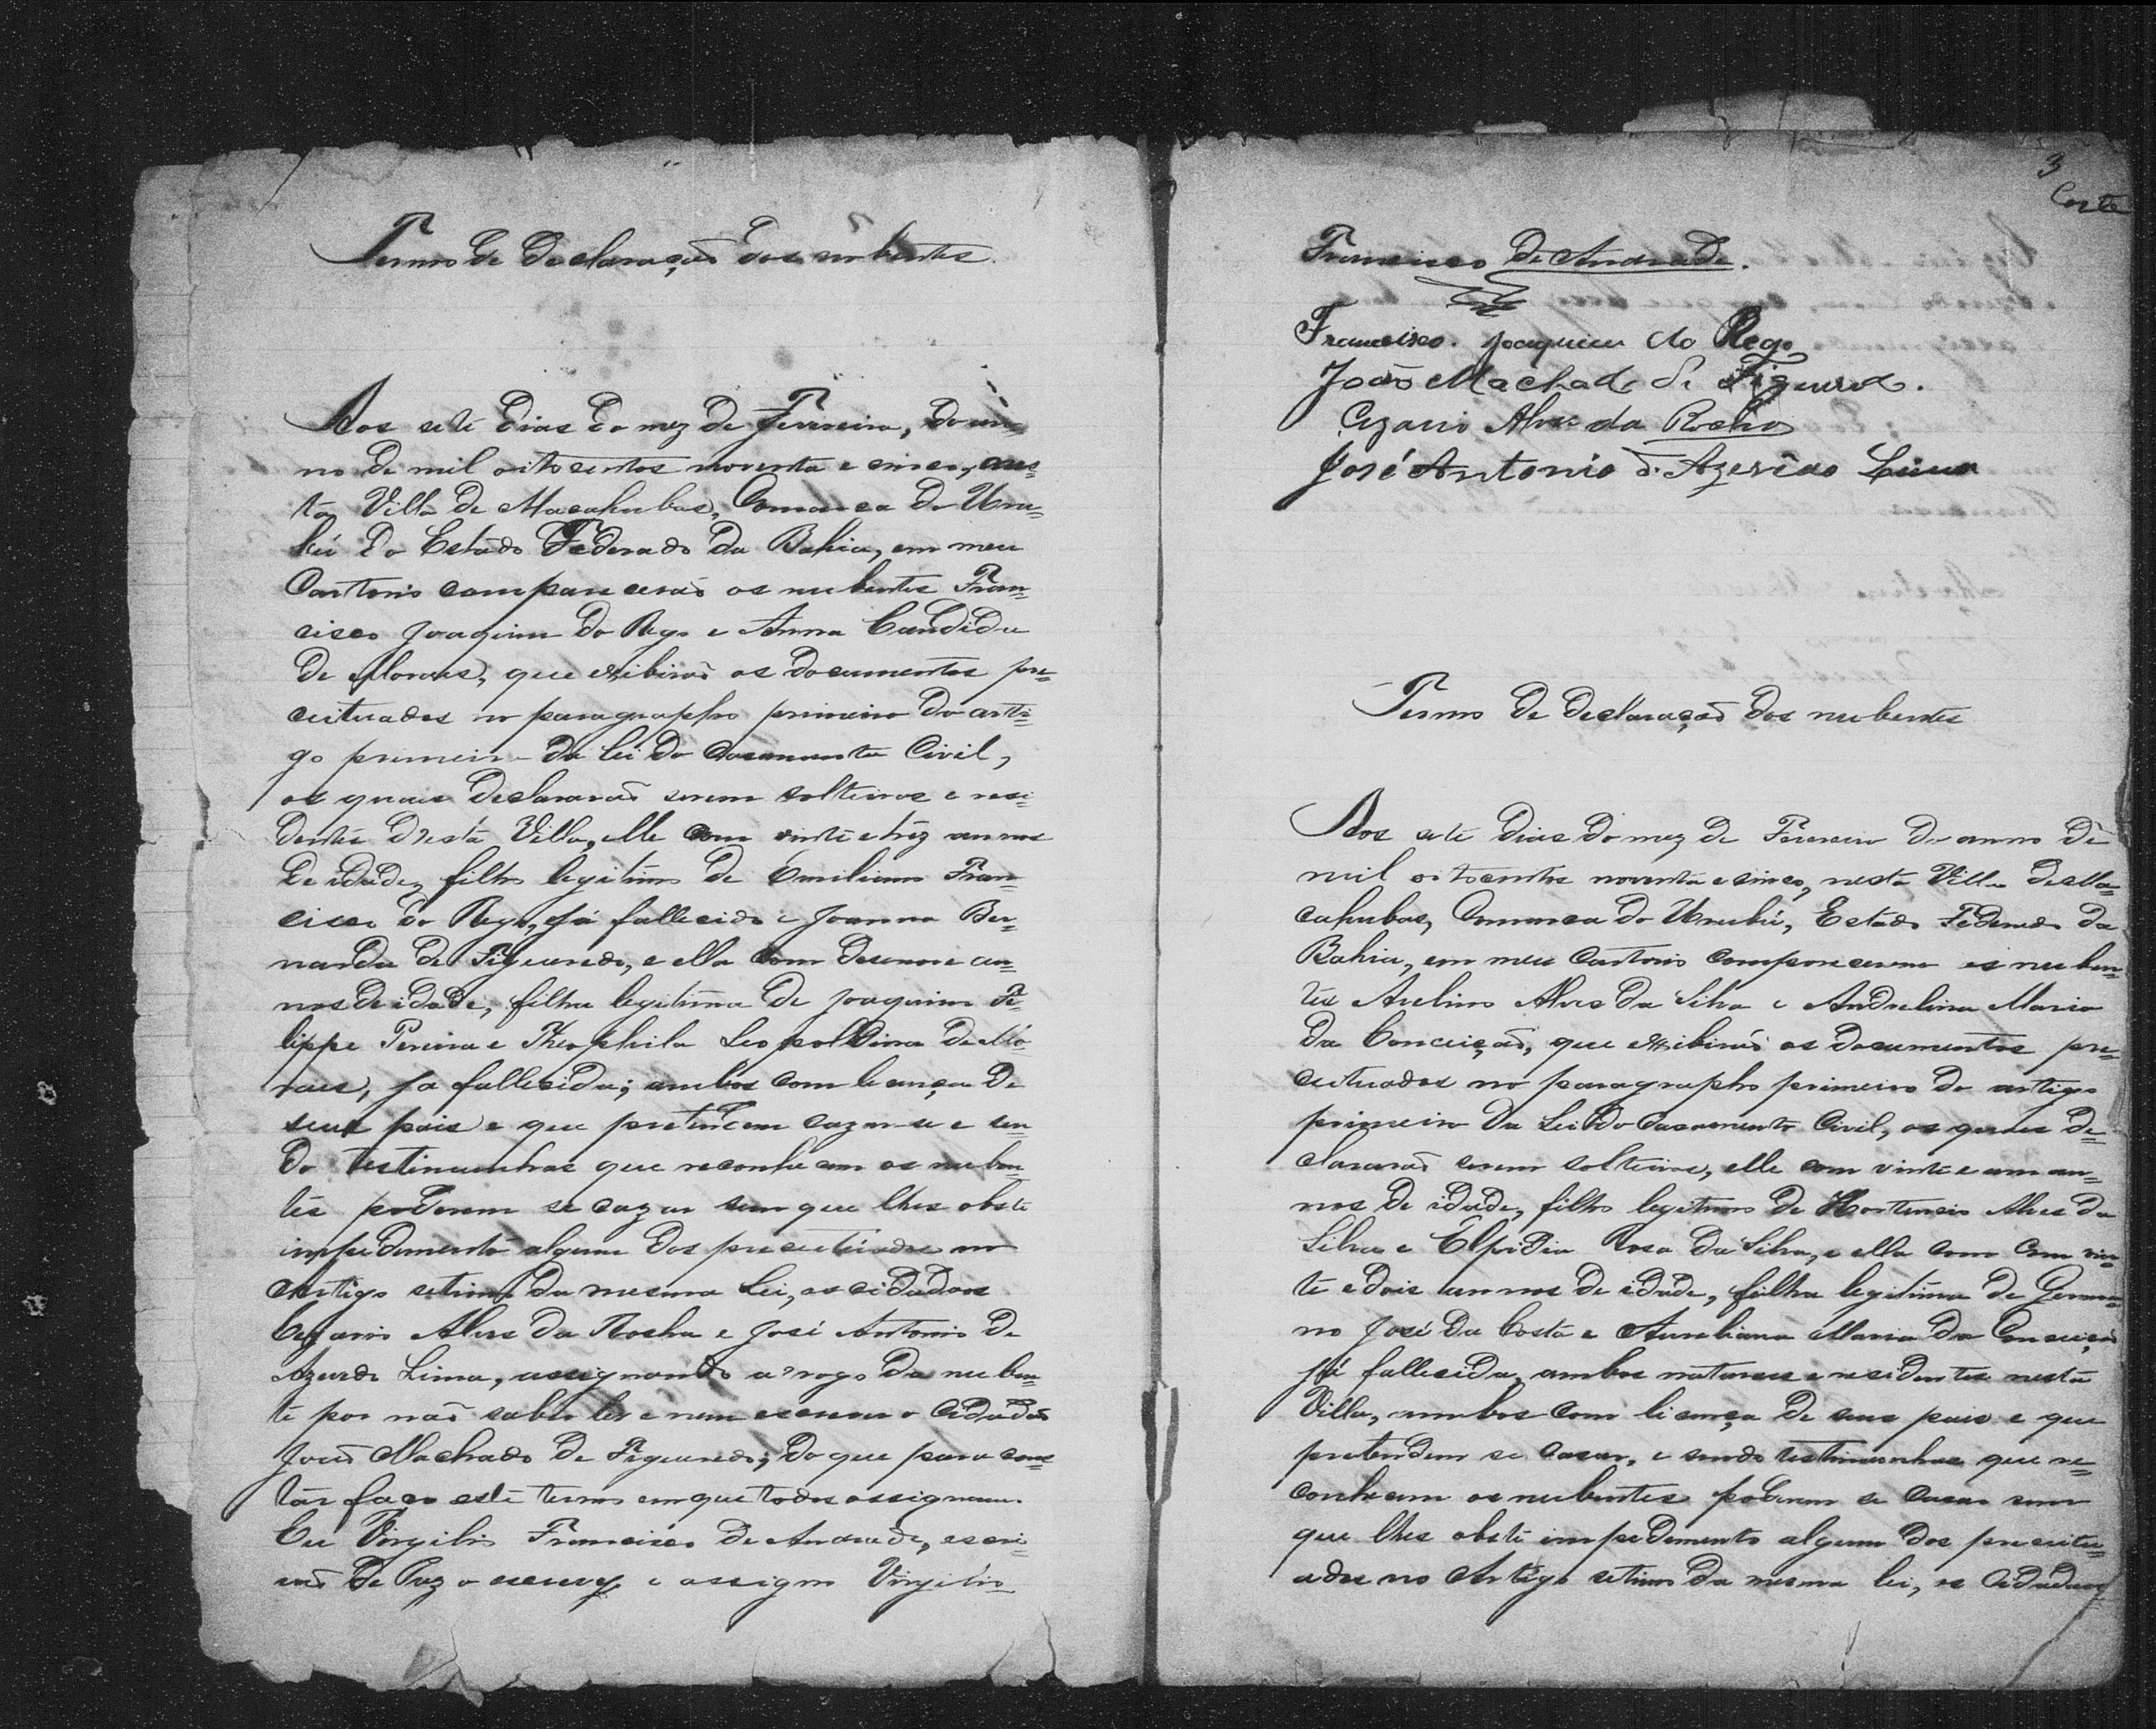 Termo de Declaração dos nubentes.
Aos sete dias do mez de Fevereiro, do an=
no de mil oitocentos noventa e cinco, nes=
ta Villa de Macahubas, Comarca do Uru=
bú do Estado Federado da Bahia, em meu
Cartorio comparecerão os nubentes Fran=
cisco Joaquim do Rego e Anna Candida
de Moraes, que exibirão os documentos pre=
ceituados no paragrapho primeiro do arti=
go primeiro da lei do Casamento Civil,
os quaes declararão serem solteiros e resi=
dentes n'esta Villa, elle com vinte e trez annos
de idade, filho legitimo de Emiliano Fran=
cisco do Rego, já fallecido e Joanna Ber=
narda de Figueredo, e ella com desenove an=
nos de idade, filha legitima de Joaquim Fe=
lippe Pereira e Theophila Leopoldina de Mo=
raes, ja fallecida; ambos com licença de
seus pais e que pretendem cazar-se e sen
do testimunhas que reconhecem os nuben
tes poderem se cazar sem que lhes obste
impedimento algum dos preceituados no
Artigo setimo da mesma Lei, os cidadãos
Cezario Alves da Rocha e José Antonio de
Azevedo Lima, assignando a rogo da nuben=
te por não saber ler e nem escrever o Cidadão
João Machado de Figueredo; do que para cons=
tar faço este termo em que todos assignam.
Eu Virgilio Francisco de Andrade, escri=
vão de Paz o escrevy e assigno Virgilio
3
Costa
Francisco de Andrade.
Francisco. Joaquim do Rego
João Machado de Figueredo.
Cezario Alves da Rocha
José Antonio d'Azevedo Lima
Termo de declaração dos nubentes
Aos sete dias do mez de Fevereiro do anno de
mil oitocentos noventa e cinco, nesta Villa de Ma=
cahubas, Comarca do Urubú, Estado Federado da
Bahia, em meu Cartorio compareceram os nuben=
tes Avelino Alves da Silva e Andrelina Maria
da Conceição, que exibirão os documentos pre=
ceituados no paragrapho primeiro do artigo
primeiro da Lei do Casamento Civil, os quaes de=
clararão serem solteiros, elle com vinte e um an=
nos de idade, filho legitimo de Hortencio Alves da
Silva e Elpidia Rosa da Silva, e ella com com vin=
te e dois annos de idade, filha legitima de Germa=
no José da Costa e Aureliana Maria da Conceição,
já fallecida, ambos naturaes e residentes nesta
Villa, ambos com licença de seus pais e que
pretendem se casar, e sendo testimunhas que re=
conhecem os nubentes poderem se casar sem
que lhes obste impedimento algum dos preceitu=
ados no Artigo setimo da mesma lei, os Cidadãos